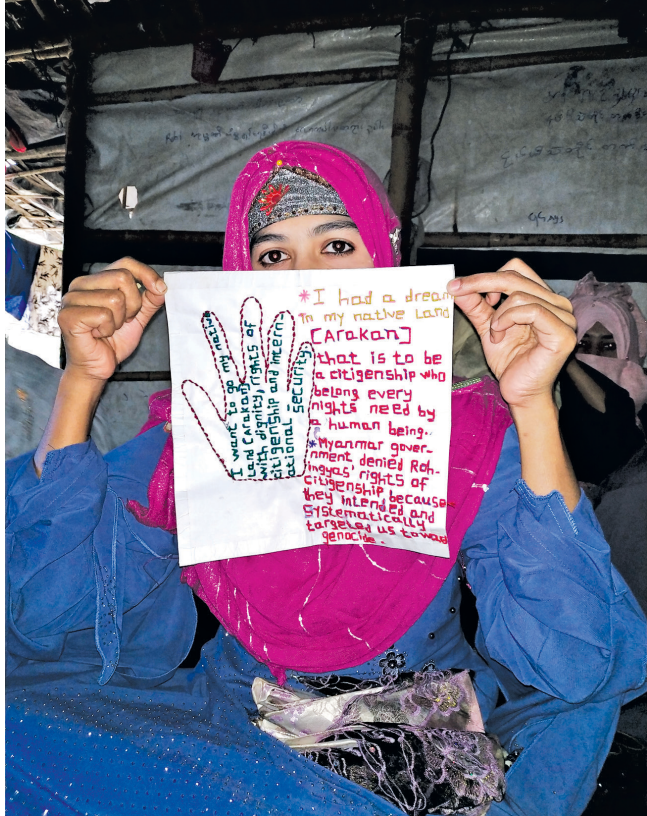 I want to go my native
land (Arakan)
with dignity, rights of
citigenship and intern-
ational security.
*I had a dream
in my native Land
[Arakan]
that is to be
a citigenship who
belong every
rights need by
a human being..
*Myanmar gover-
nment denied Roh-
ingyas' rights of
citigenship because
they intended and
systematically
targeted us toward
genocide.